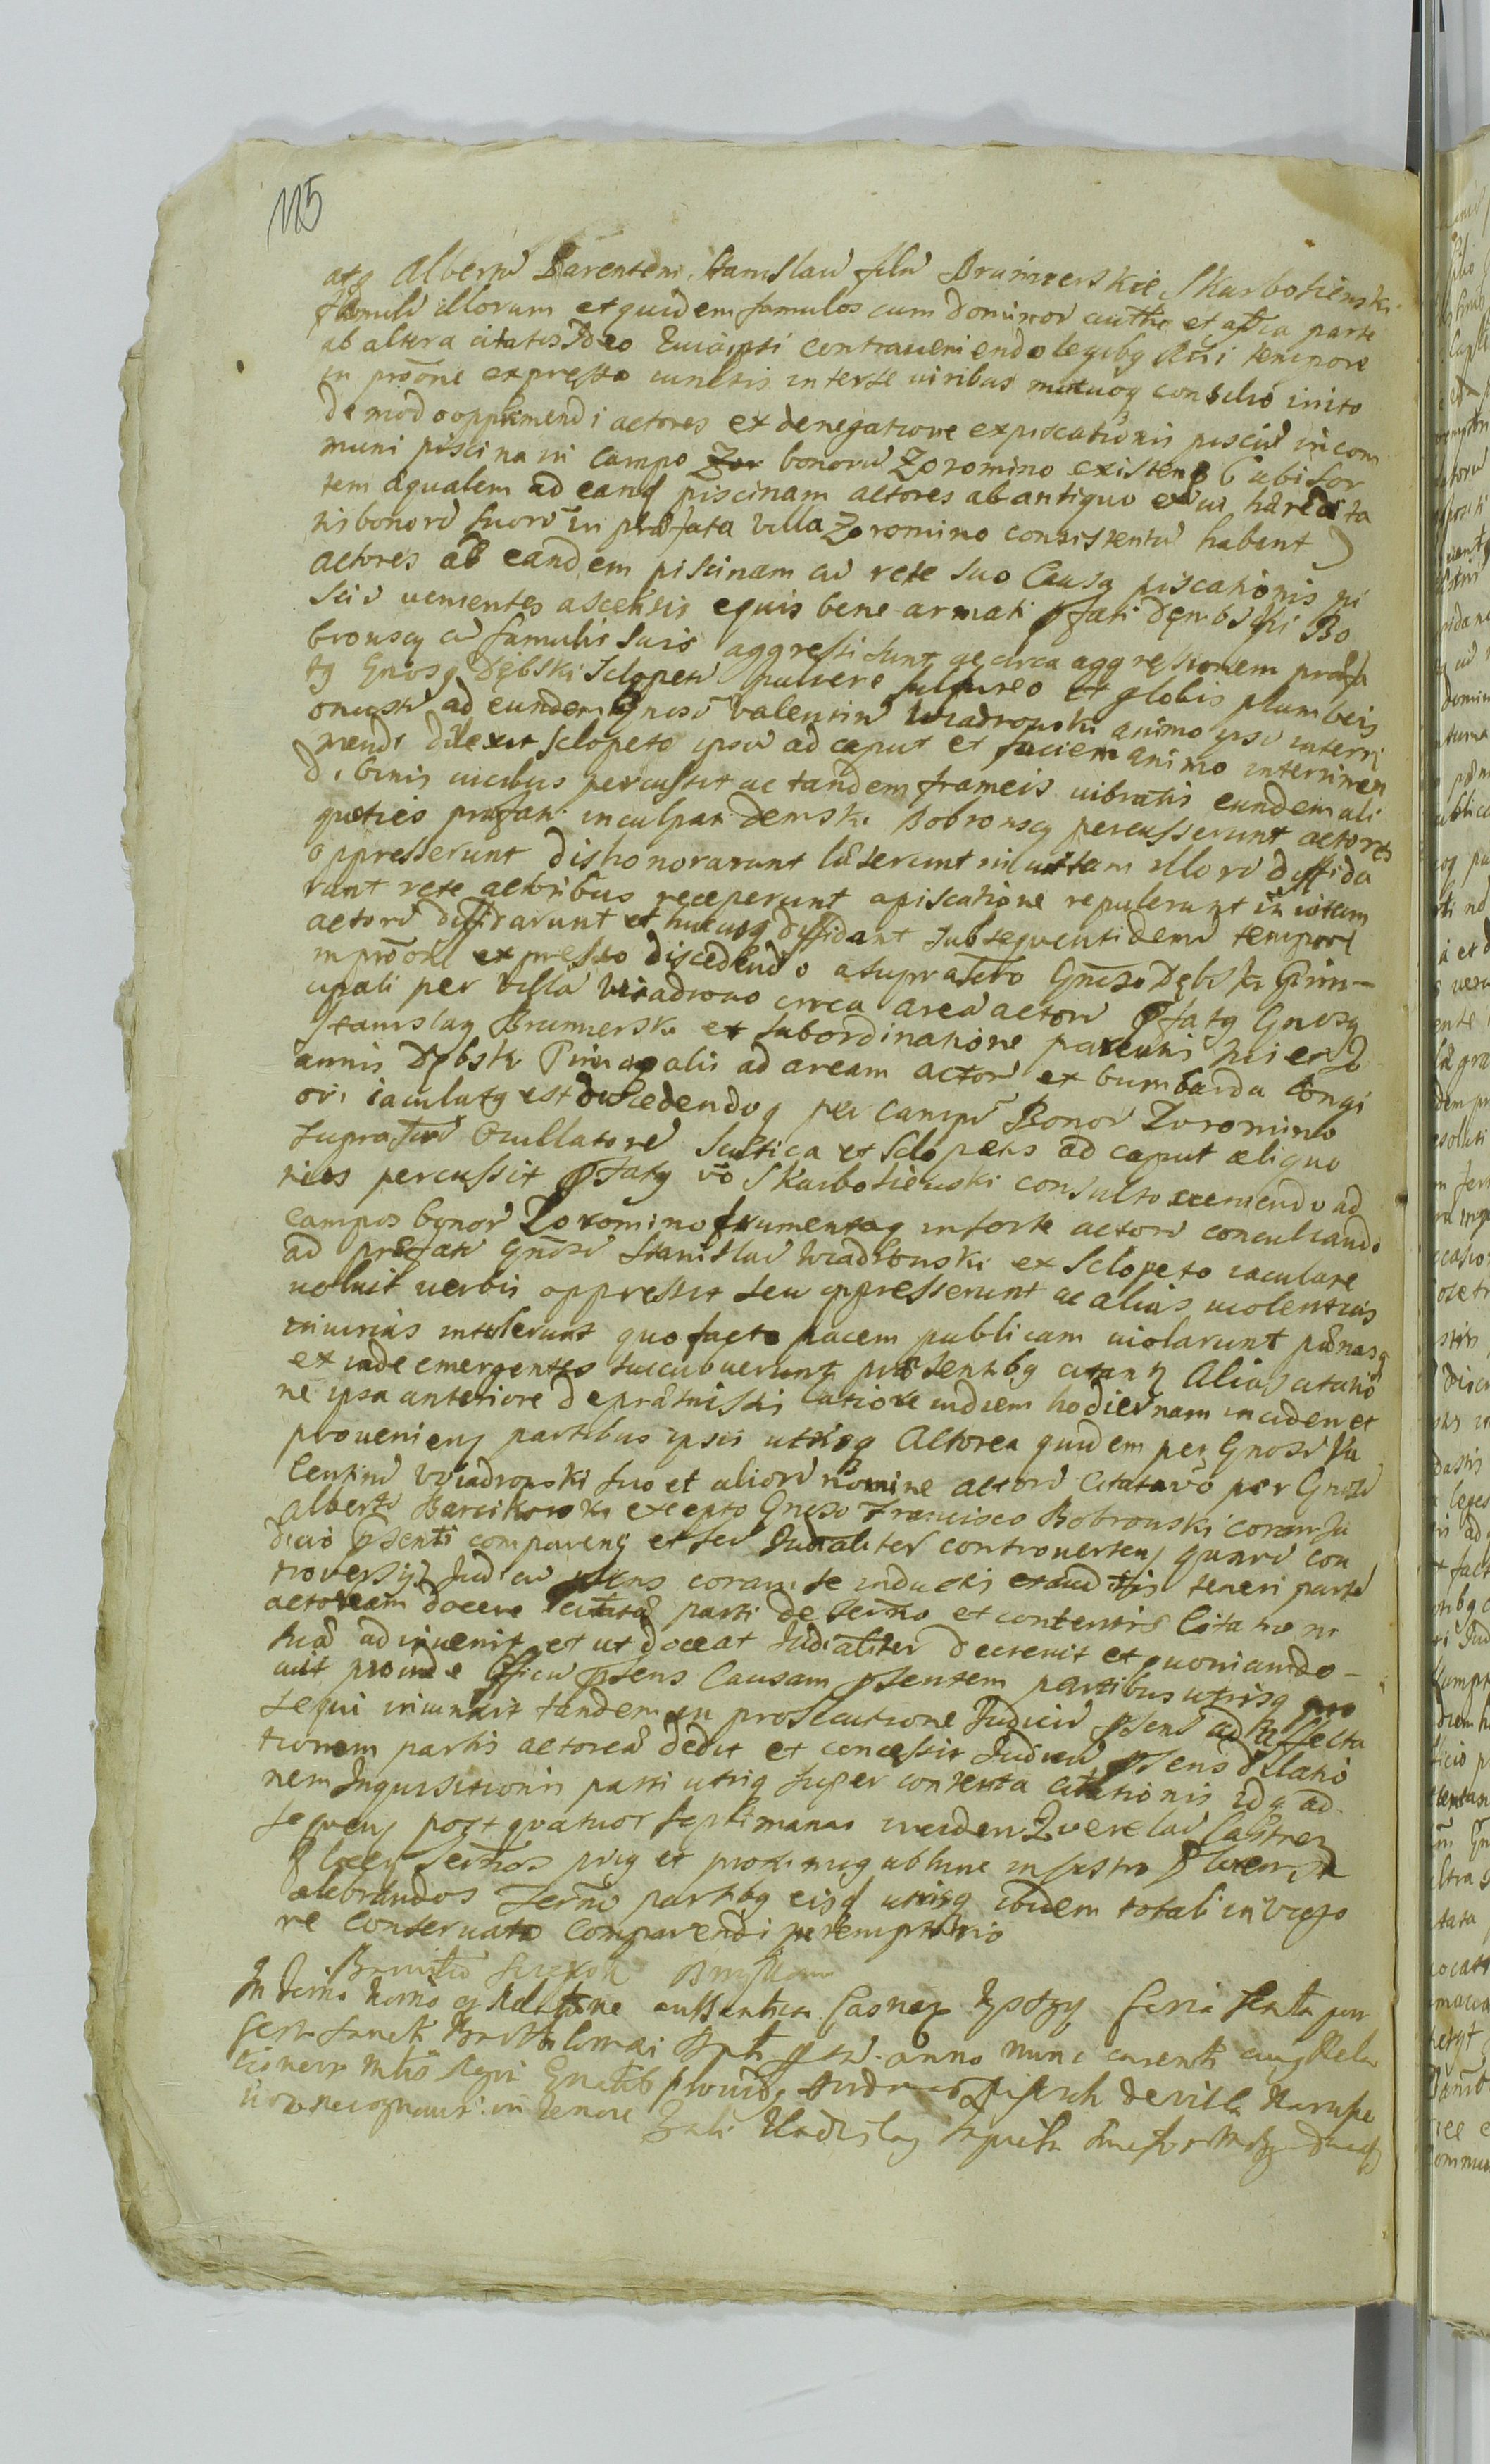 115
atq Albertu Parentem, Stanislau filiu Brunnerskie Skarboszewski
famulu illorum et quidem famulos cum dominor authte et assa parte
ab altera citatis Ideo Quia ipsi contraueniendo legibq Rni tempore
in prōne expresso iunctis inter se uiribus mutuoq consilio inito
de modo opprimendi actores ex denegatione expiscationis pisciu in com
muni piscina in campo bonoru Zoromino existen ( ubi sor
tem aequalem ad eand piscinam actores ab antiquo ex ui haeredita
tis bonoru suoru in praefata villa Zoromino consistentiu habent )
actores ad eandem piscinam cu rete suo Causa piscationis pi
sciu uenientes ascensis equis bene armati pfati Dembski Bo
brouscy cu famulis suis aggressi sunt ac circa aggressionem praefa
tq Gnosq Dębski sclopetu puluere sulpureo et globis plumbeis
onustu ad eundem Gnosu Valentinu Wiadrowski animo ipsu interi
mendi direxit sclopeto ipsu ad caput et faciem animo interimen
di binis uicibus percussit ac tandem frameis uibratis eundem ali
quoties praefati inculpati Demski Bobrouscy percusserunt actores
oppresserunt dishonorarunt laeserunt in uitam illoru diffida
runt rete actoribus receperunt a piscatione repulerunt in uitam
actoru diffidarunt et hucusq diffidant subsequenti demu tempore
in prōne expresso discedendo a supra Gnoso Dębski Prin-
cipali per villa Wiadrowo circa area actoru pfatq Gnosq
Stanislaq Brunnerski ex subordinatione parentis sui et Jo
annis Dębski Principalis ad aream actoru ex bumbarda longi
ori iaculatq est discedendoq per campu Bonoru Zoromino
supra scutica et sclopetis ad caput aliquo
ties percussit pfatq uo Skarboszewski consulto ueniendo ad
campos bonoru Zoromino frumentaq in sorte actoru conculcando
ad praefatu Gnosu Stanislau Wiadrowski ex sclopeto iaculare
uoluit uerbis oppressit seu oppresserunt ac alias uiolentias
iniurias intulerunt quo facto pacem publicam uiolarunt paenasq
ex inde emergentes succubuerunt praesentibq citantr Alias citatio
ne ipsa anteriore de praemissis latiore in diem hodiernam inciden et
prouenien partibus ipsis utrisq Actorea quidem per Gnosu Va
lentinu Wiadrowski suo et alioru nomine actoru Citata uo per Gnosu
Albertu Barcikowski excepto Gnoso Francisco Bobrouski coram Iu
dicio psenti comparen et sed Iudialiter controuerten quaru con
trouersijs Iudiciu psens coram se inductis et auditis teneri parte
actoream docere citatae parti de termo et contentis Citationi
suae adinuenit et ut doceat Iudialiter decreuit et quoniam do-
cuit proinde Officiu psens Causam psentem partibus utrisq pro
sequi iniunxit tandem in prosecutione Iudiciu psens ad affecta
tionem partis actoreae dedit et concessit Iudiciu psens dilatio
nem Inquisitionis parti utriq super contenta citationis idq ad
sequen post quatuor septimanas inciden Querelar Castren
termos priq et proximiq ab hinc in castro
celebrandos Termu partibq eisd utrisq ibidem totali in vigo
re conseruato comparendi peremptorio
In termo Relatione authentica feria sexta post
festa Sancti Bartholomaei anno nunc currenti
de villa
recognouit in tenore